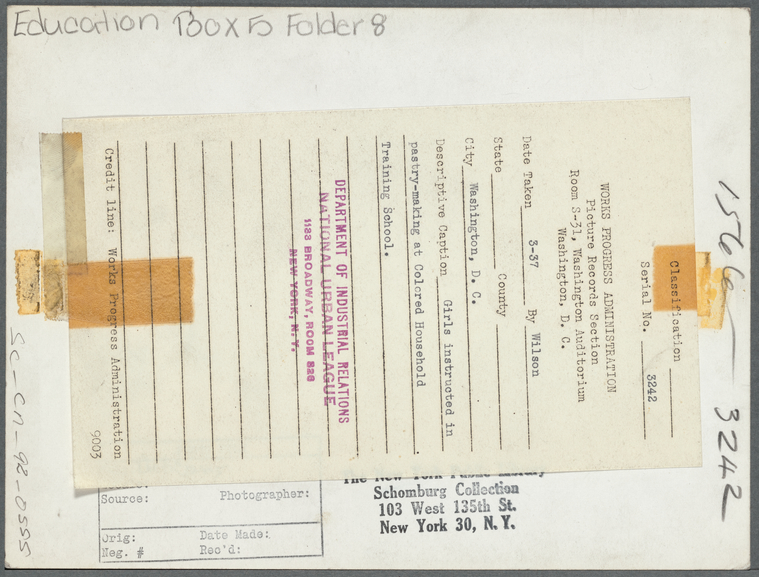 Education Box 5 Folder 8
Classification
Serial No. 3242
WORKS PROGRESS ADMINISTRATION
Picture Records Section
Room S-31, Washington Auditorium
Washington, D. C.
Date Taken 3-37 By Wilson
State County
City Washington, D. C.
Descriptive Caption Girls instructed in
pastry-making at Colored Household
Training School.
DEPARTMENT OF INDUSTRIAL RELATIONS
NATIONAL URBAN LEAGUE
1133 BROADWAY, ROOM 826
NEW YORK, N. Y.
Credit line: Works Progress Administration
9003
3242
SC-CN-92-0555
Source: Photographer:
Orig: Date Made:
Neg. # Rec'd:
The New York Public Library
Schomburg Collection
103 West 135th St.
New York 30, N. Y.